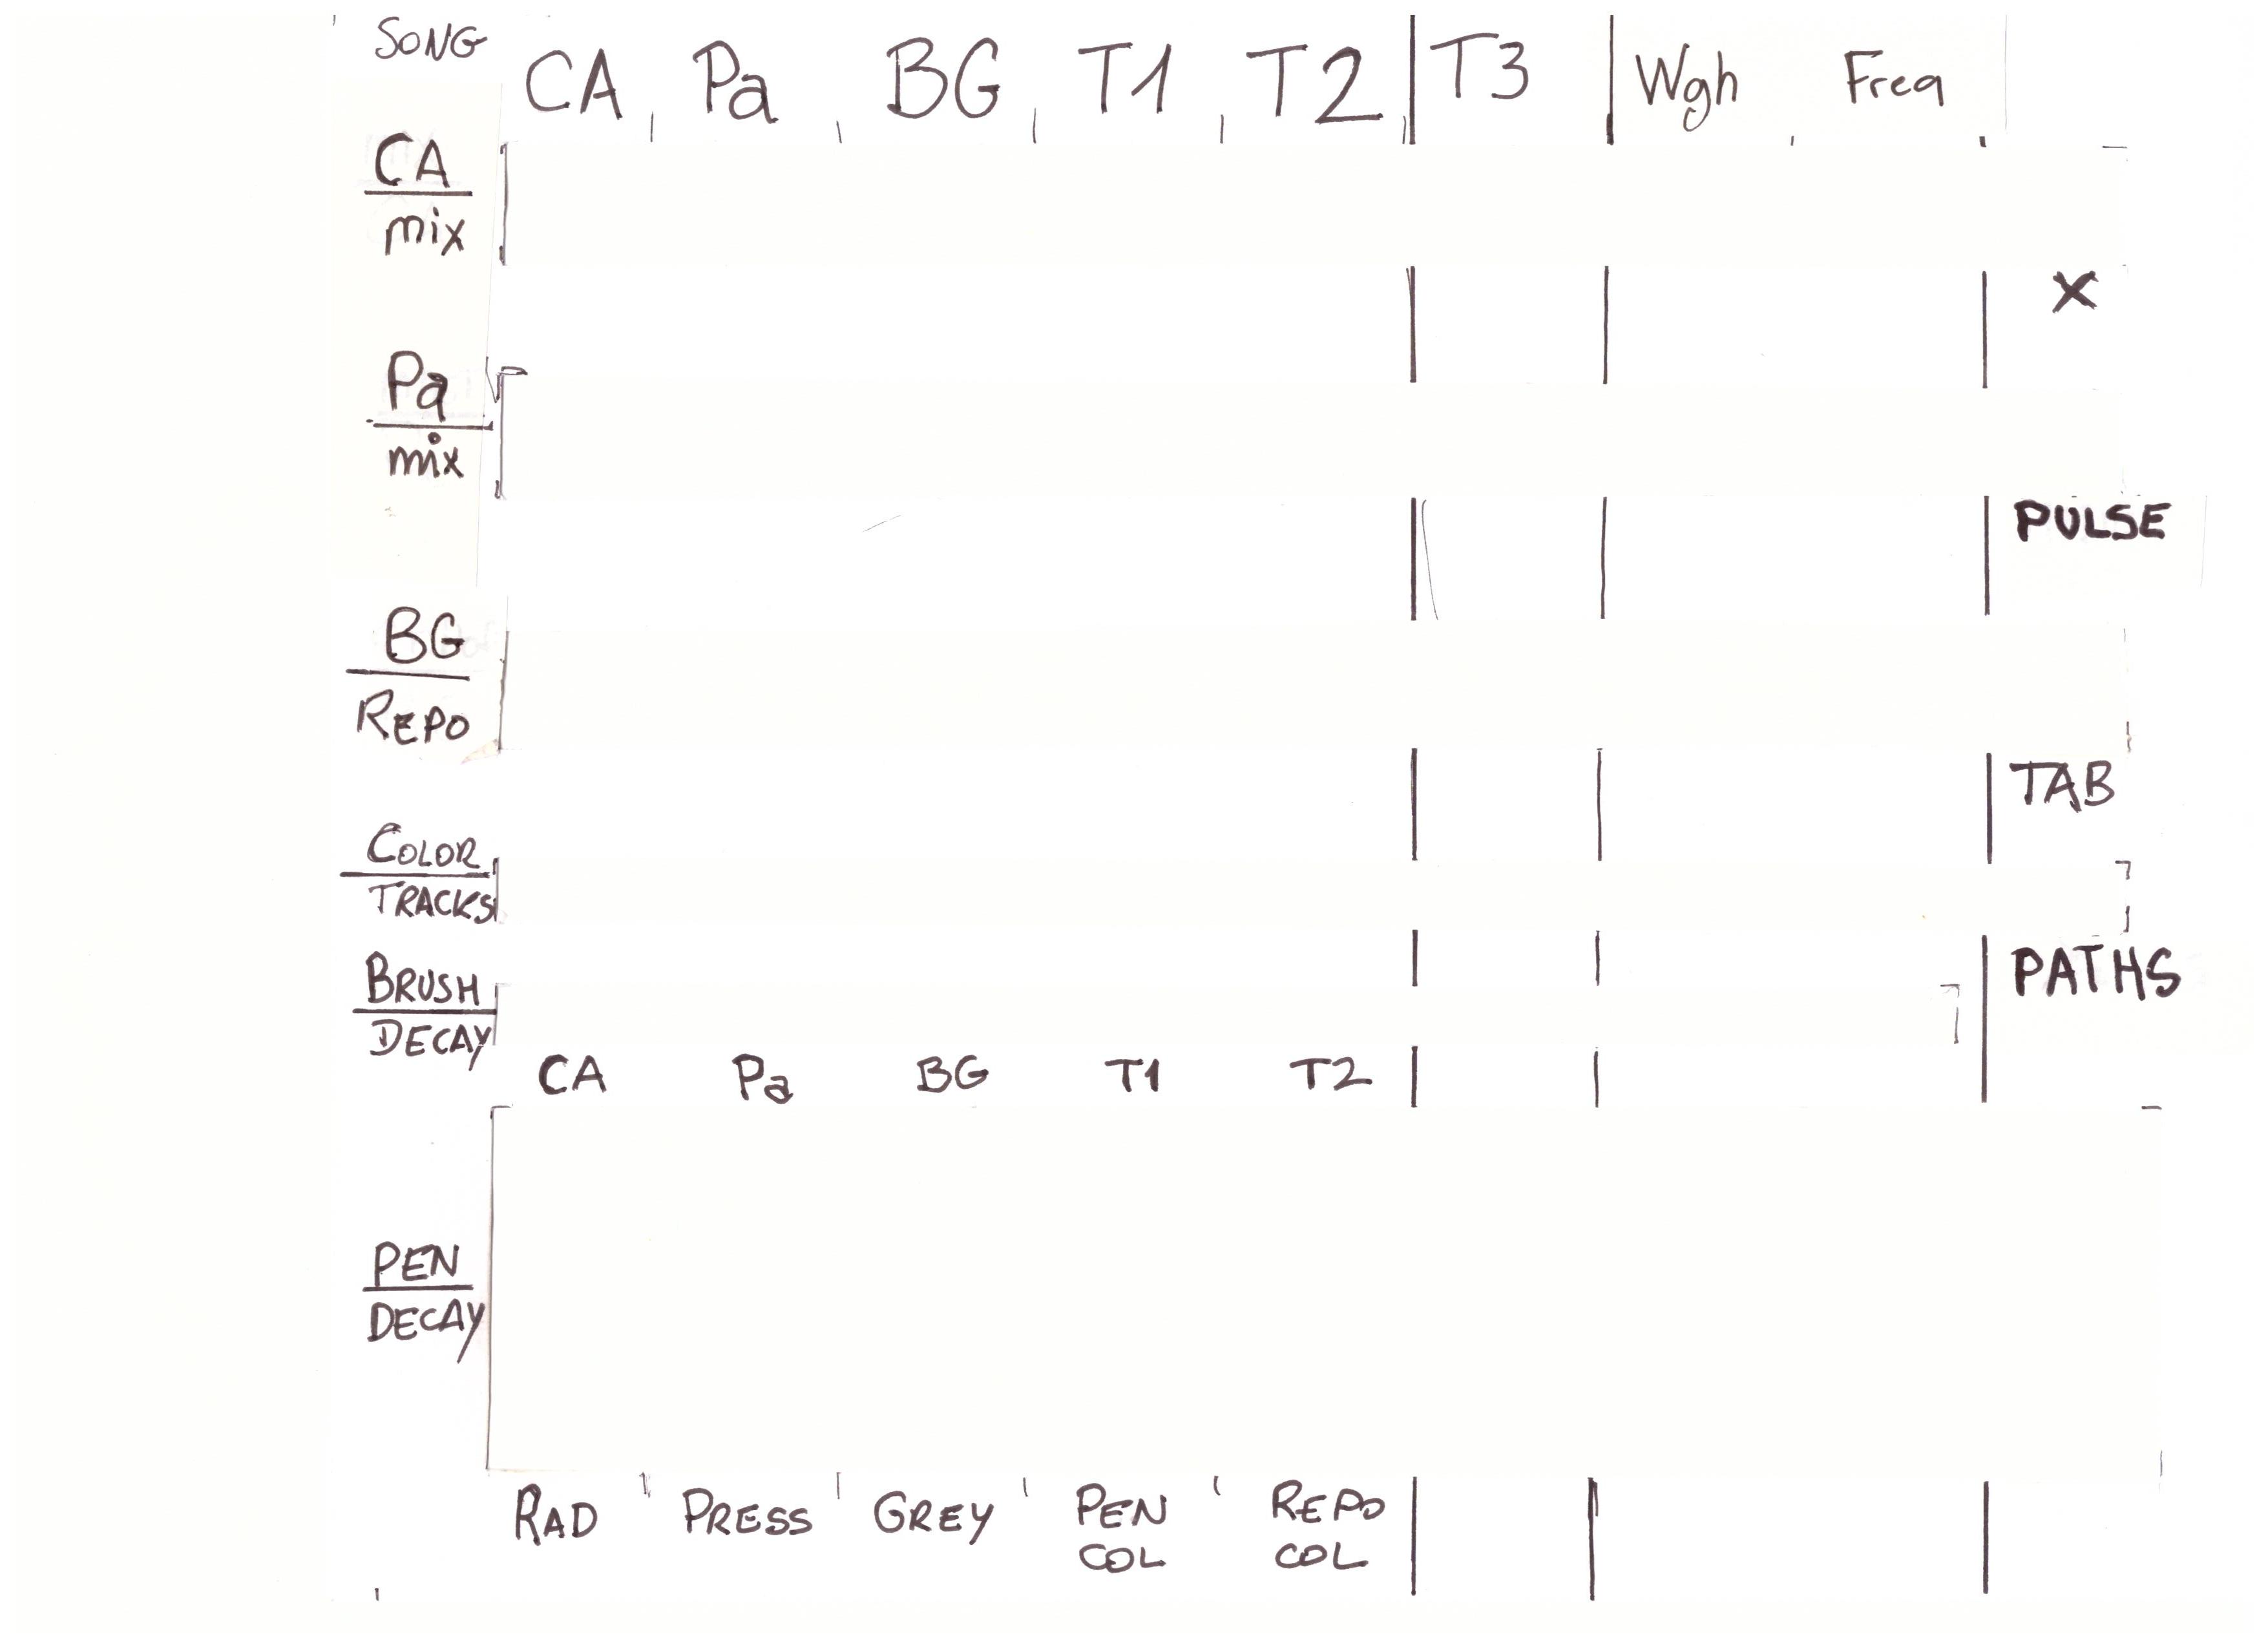 SONG CA Pa BG T1 T2 T3 Wgh Freq
CA
mix
X
Pa
mix
PULSE
BG
REPO
TAB
COLOR
TRACKS
BRUSH
PATHS
DECAY
CA Pa BG T1 T2
PEN
DECAY
RAD PRESS GREY PEN REPO
COL COL